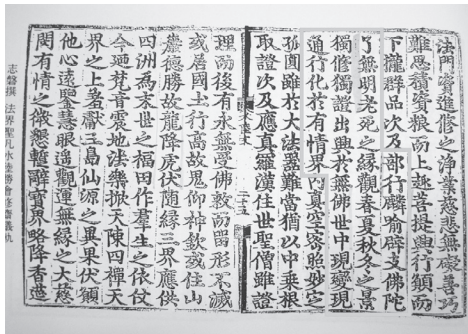 法門資進修之淨業慈悲無礙善巧
難思積資粮而上趣菩提興行願而
下攝群品次及部行麟喻辟支佛陀
了無明老死之緣觀春夏秋冬之景
獨修獨證出興於無佛世中現變現
通行化於有情界內真空
圓雖於大法器難當猶以中乘根
取證次及應真羅漢住世聖僧雖證
二十五
理而後有永盡受佛敕而留形不滅
或居國土行高故鬼仰神欽或住山
巖德勝故龍降虎伏隨緣三界應供
四洲為末世之福田作羣生之依仗
今廼梵音震地法樂掀天陳四禪天
界之上羞獻三島仙源之異果伏願
他心遠鑒慧眼遙觀運無緣之大慈
閔有情之微懇暫辭寶界略降香筵
志磐撰 法界聖凡水陸勝會修齋儀軌